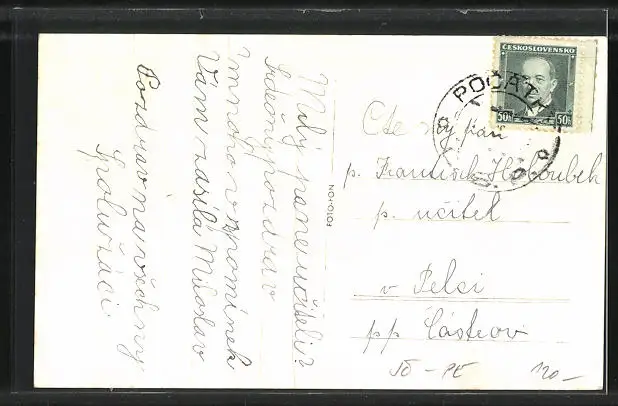 Milý pane učiteli?
Srdečný pozdrav
mnoho vzpomínek
Vám zasílá Miloslav
Pozdrav na všechny
Spolužáci
FOTO-FON
ČESKOSLOVENSKO
50h 50h
POČÁT
Ctěný pán
p. František Holoubek
p. učitel
v Pelci
pp Částrov
120-